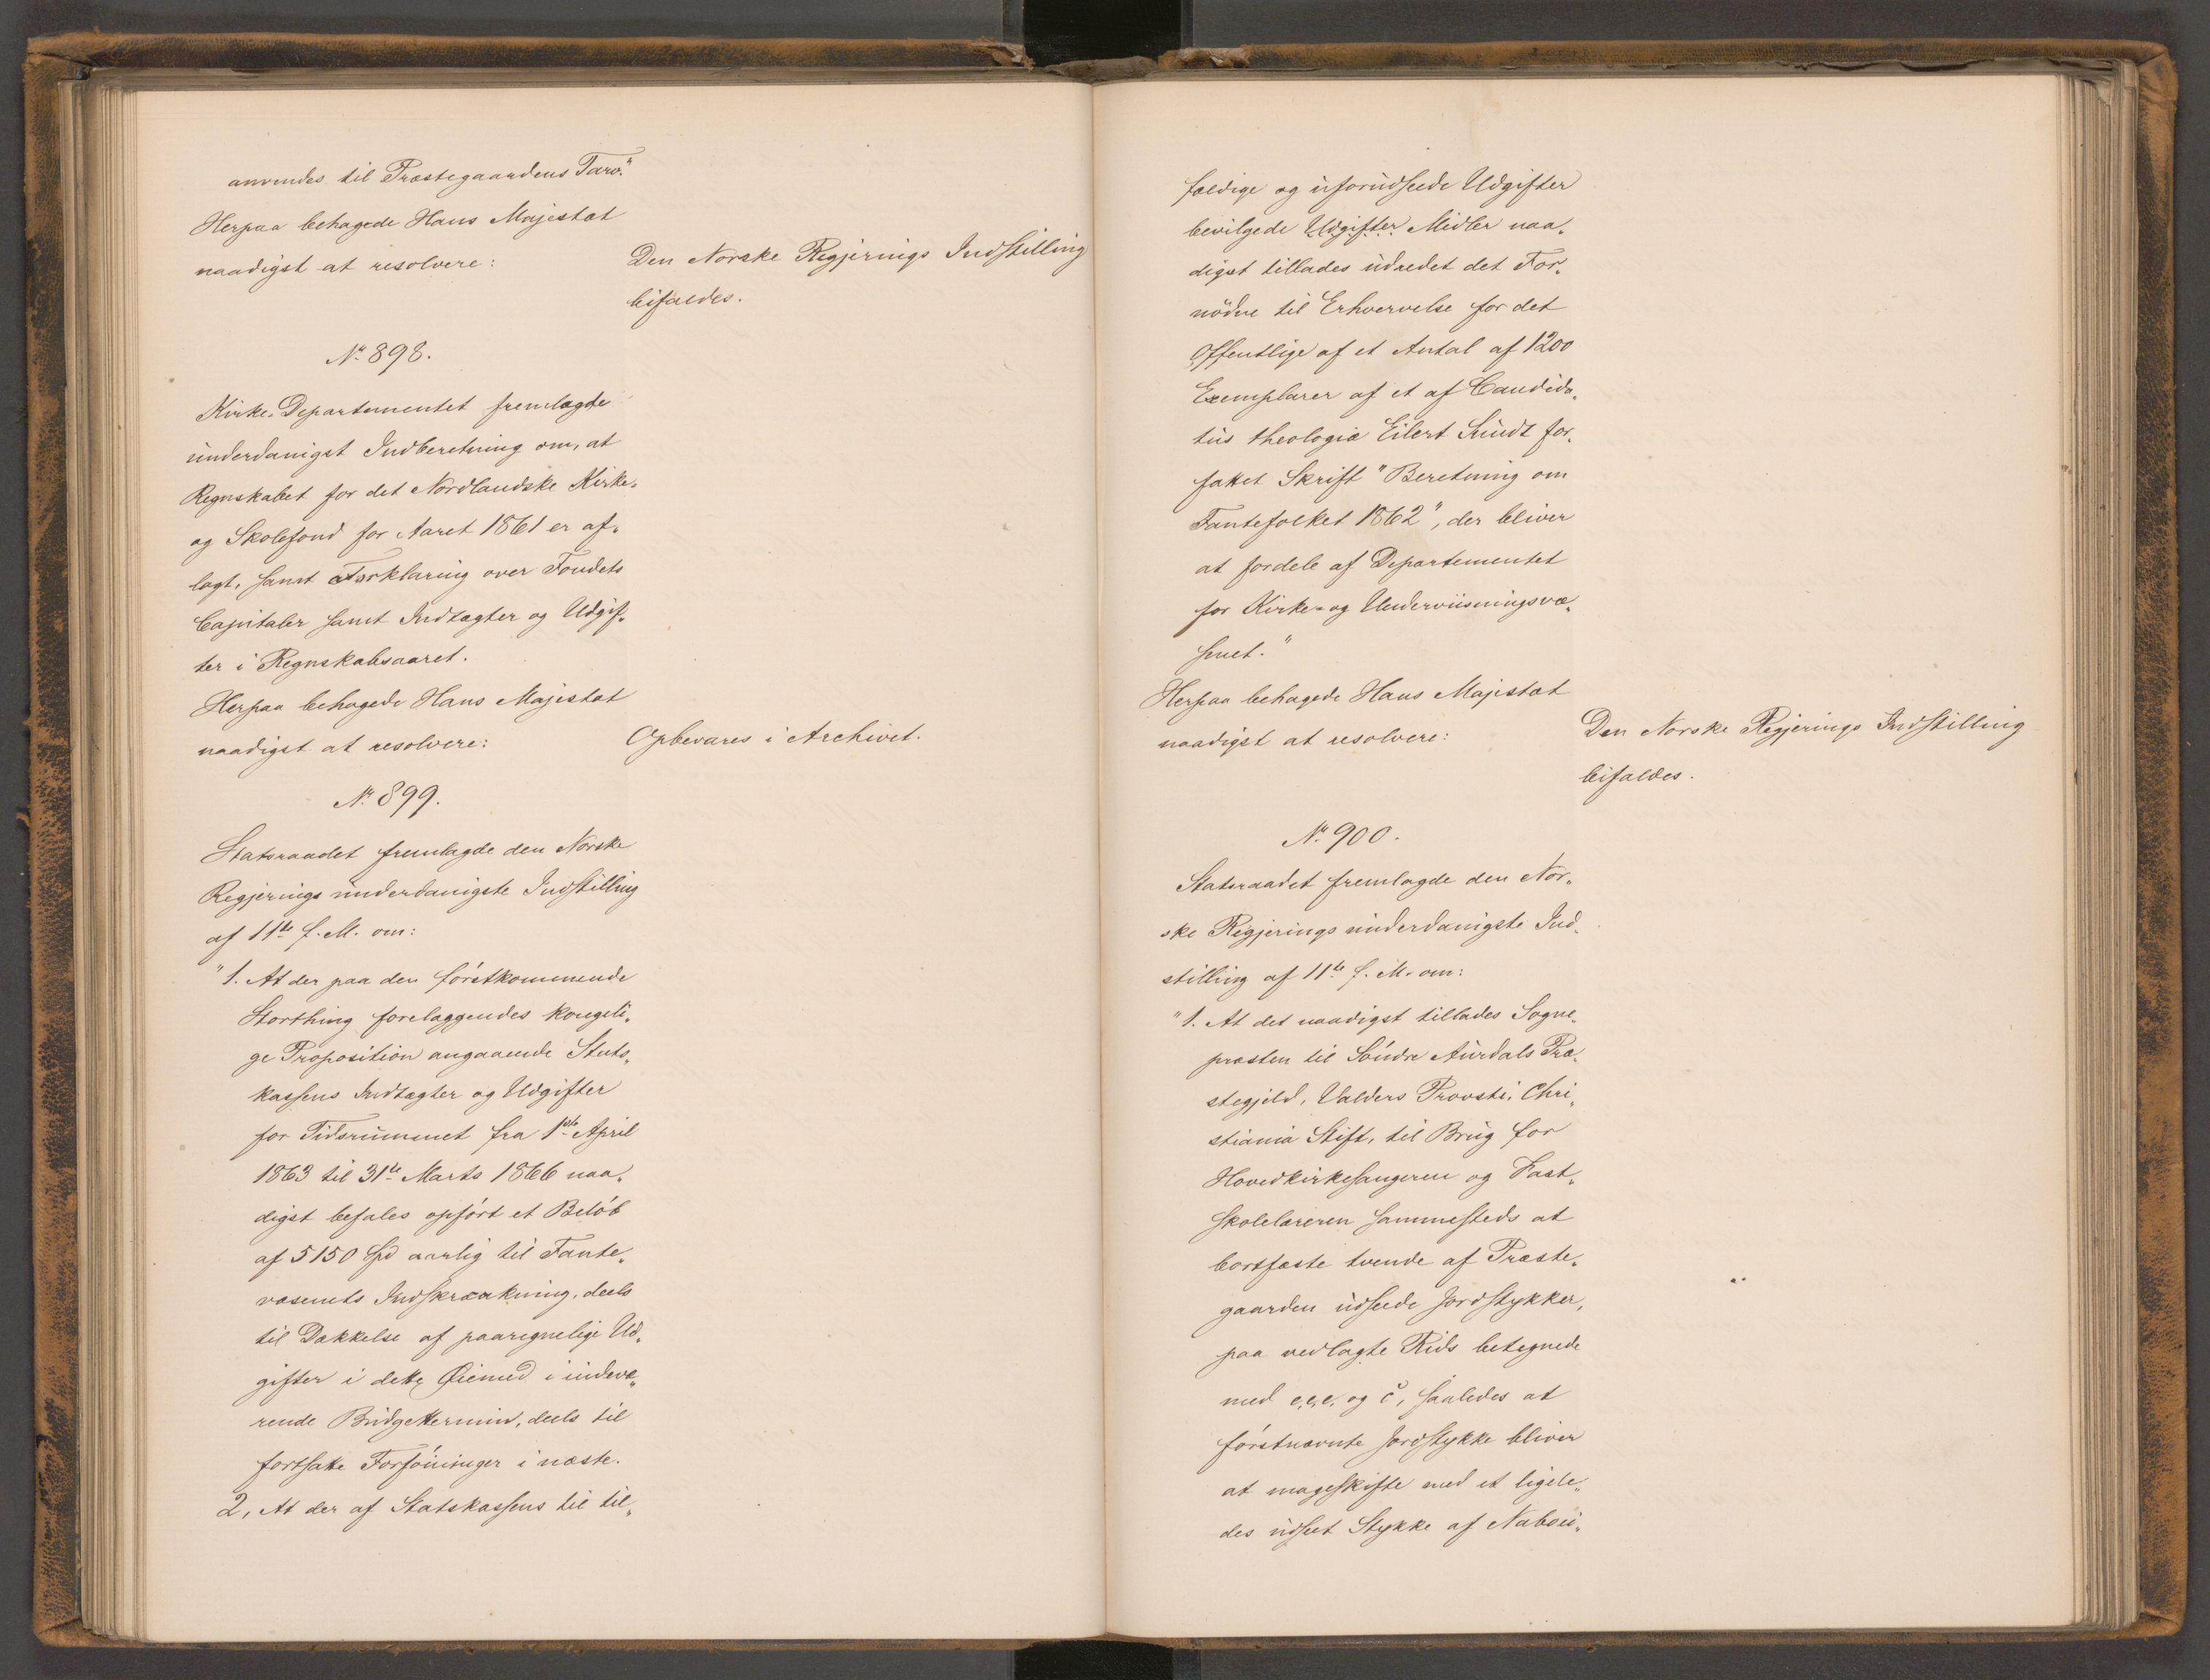 anvendes til Præstegaardens Tarv."
Herpaa behagede Hans Majestæt
naadigst at resolvere:
Den Norske Regjerings Indstilling
bifaldes.
No. 898.
Kirke-Departementet fremlagde
underdanigst Indberetning om, at
Regnskabet for det Nordlandske Kirke-
og Skolefond for Aaret 1861 er af-
lagt, samt Forklaring over Fondets
Capitaler samt Indtægter og Udgif-
ter i Regnskabsaaret.
Herpaa behagede Hans Majestæt
naadigst at resolvere:
Opbevares i Archivet.
No. 899.
Statsraadet fremlagde den Norske
Regjerings underdanigste Indstilling
af 11te f. M. om:
"1. At der paa den förstkommende
Storthing forelæggendes kongeli-
ge Proposition angaaende Stats-
kassens Indtægter og Udgifter
for Tidsrummet fra 1ste April
1863 til 31te Marts 1866 naa-
digst befales opfört et Belöb
af 5150 Spd aarlig til Fante-
væsenets Indskrænkning, deels
til Dækkelse af paaregnelige Ud-
gifter i dette Øiemed i indevæ-
rende Budgettermin, deels til
fortsatte Forföininger i næste.
2, At der af Statskassens til til-
fældige og uforudseede Udgifter
bevilgede Udgifter Midler naa-
digst tillades udredet det For-
nödne til Erhvervelse for det
Offentlige af et Antal af 1200
Exemplarer af et af Candida-
tus theologiæ Eilert Sundt for-
fattet Skrift "Beretning om
Fantefolket 1862", der bliver
at fordele af Departementet
for Kirke- og Underviisningsvæ-
snet."
Herpaa behagede Hans Majestæt
naadigst at resolvere:
Den Norske Regjerings Indstilling
bifaldes.
No. 900.
Statsraadet fremlagde den Nor-
ske Regjerings underdanigste Ind-
stilling af 11te f. M. om:
"1. At det naadigst tillades Sogne-
præsten til Söndre Aurdals Præ-
stegjeld, Valders Provsti, Chri-
stiania Stift, til Brug for
Hovedkirkesangeren og Fast-
skolelæreren sammesteds at
bortfæste tvende af Præste-
gaarden udseede Jordstykker,
paa vedlagte Rids betegnede
med e,e,e, og c, saaledes at
förstnævnte Jordstykke bliver
at mageskifte med et ligele-
des udseet Stykke af Naboei-